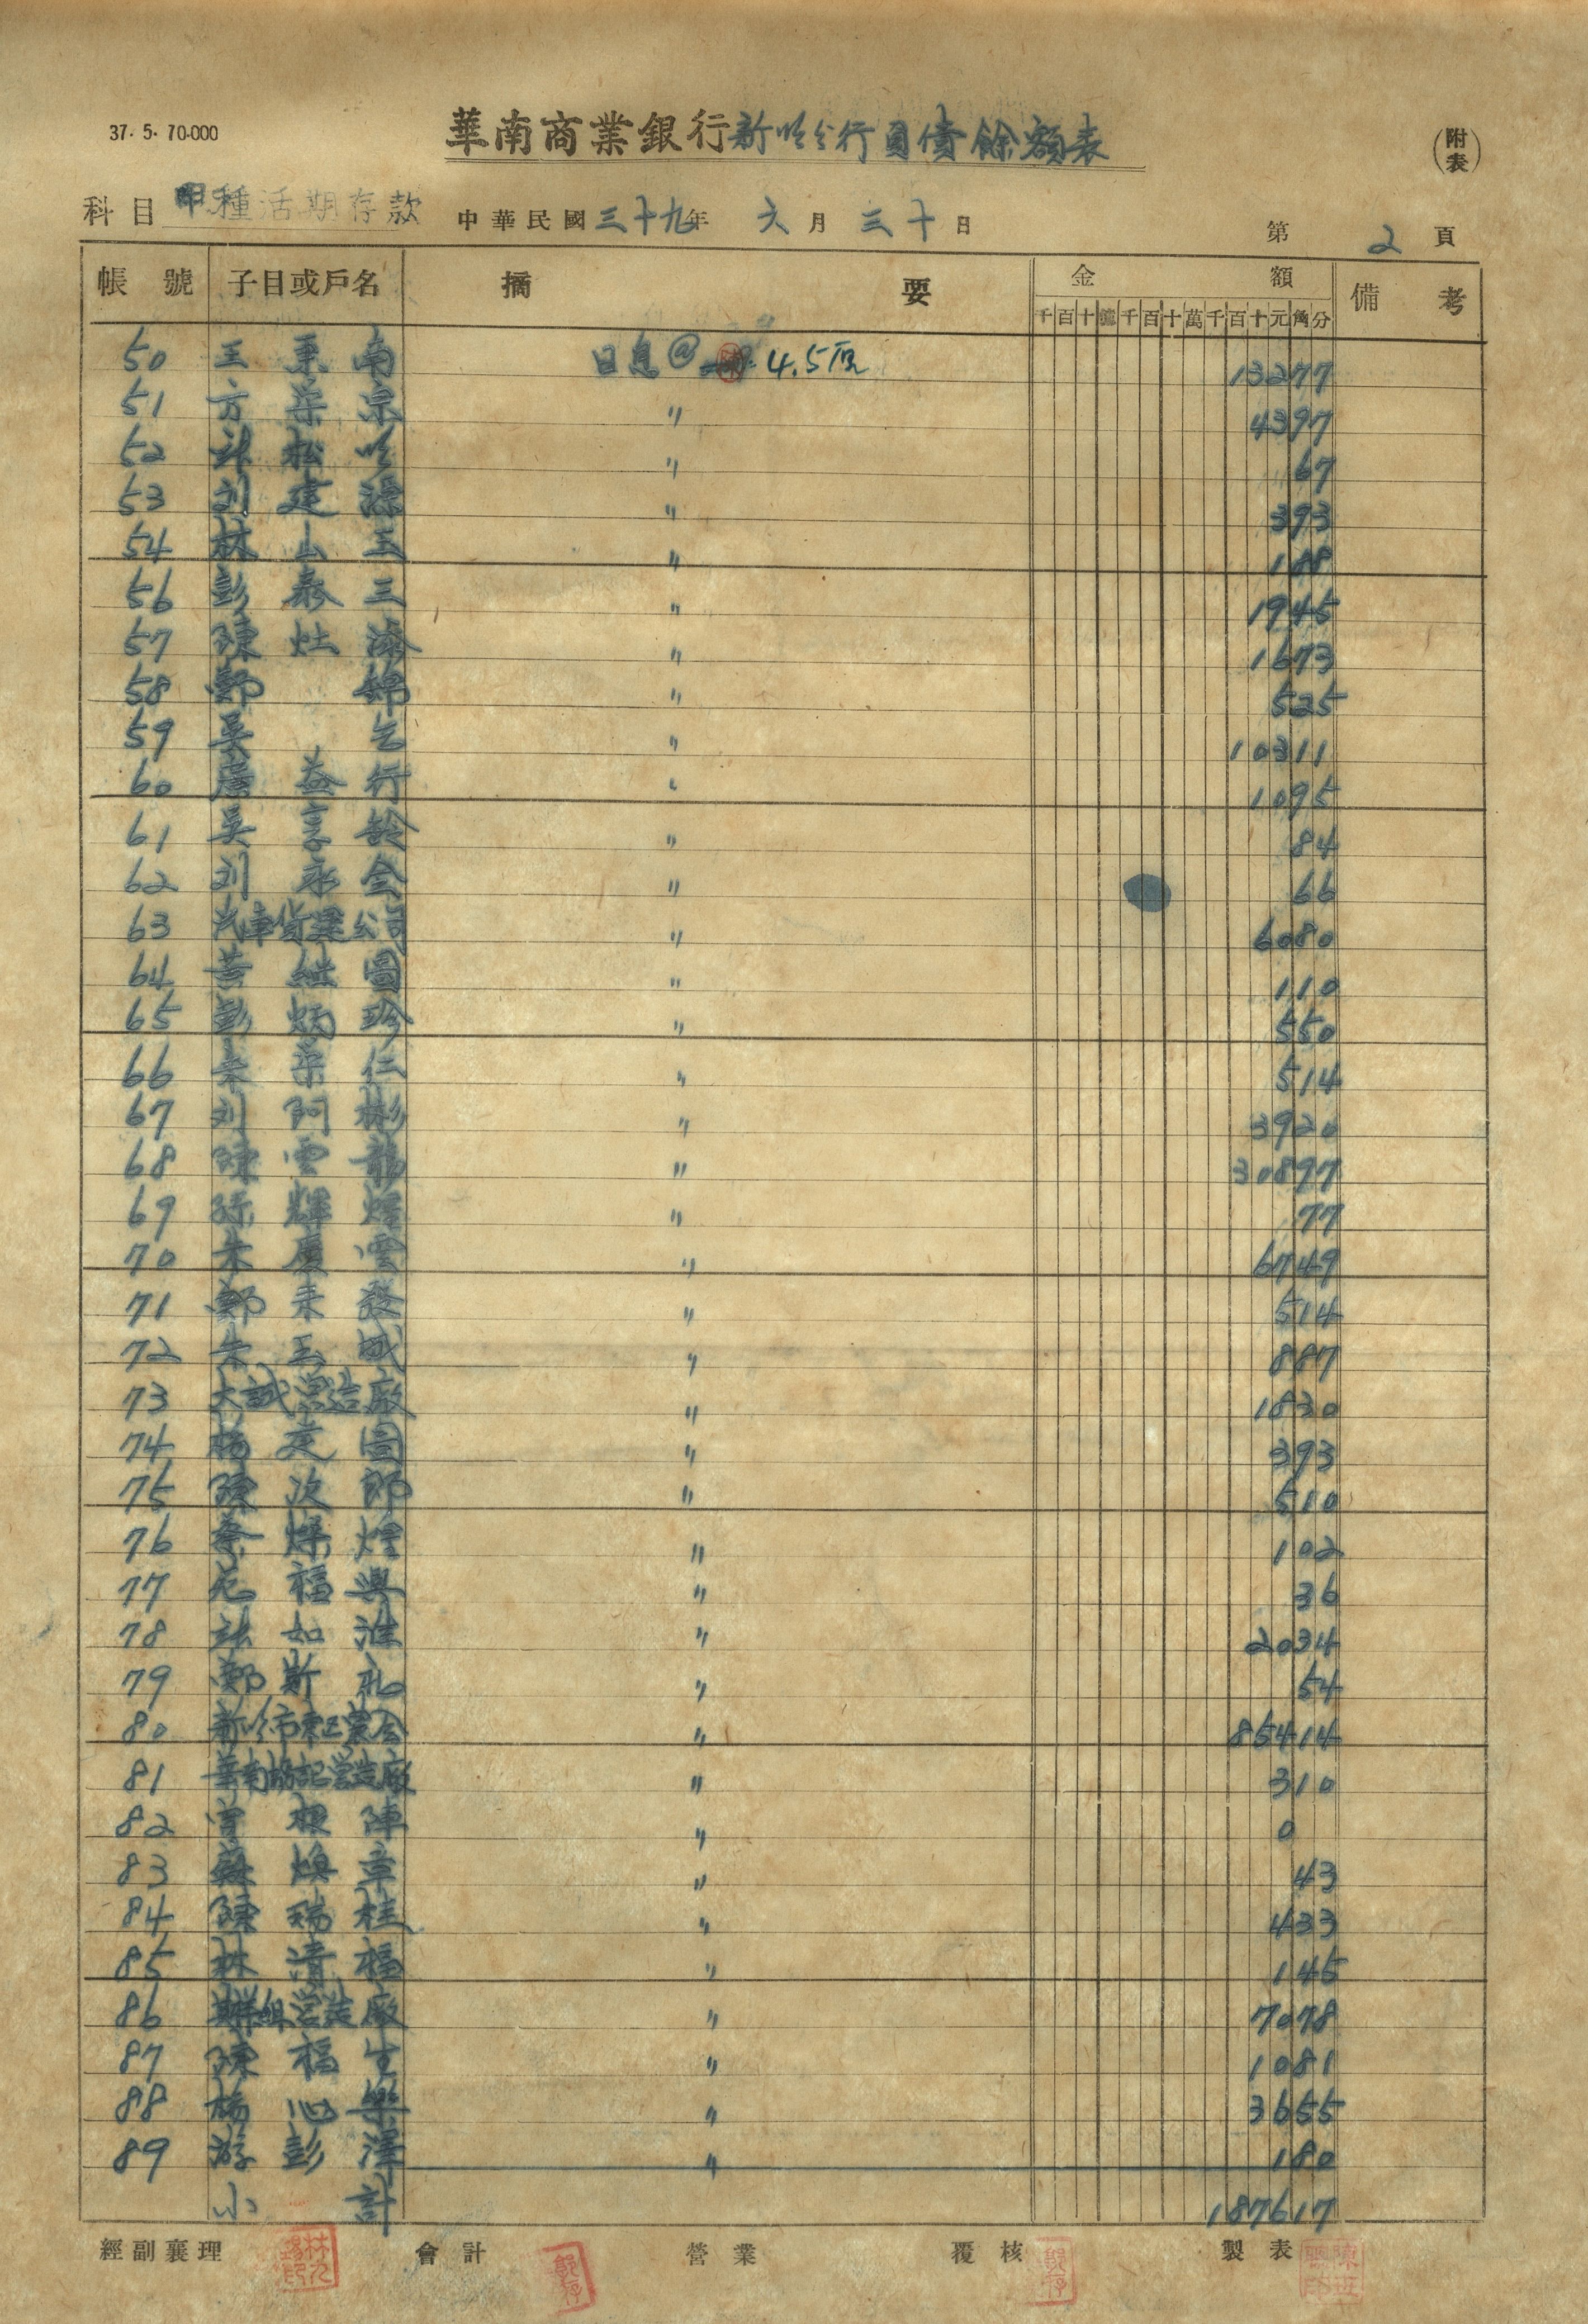 37. 5. 70.000
華南商業銀行新竹分行負債餘額表
(附表)
科目 甲種活期存款 中華民國三十九年 六月 三十日 第 2 頁
帳號 子目或戶名 摘要 金額 備考
千百十億千百十萬千百十元角分
50 王 南 日息@ 4.5厘 13277
51 方 榮 宗 〃 4397
52 張 松 竹 〃 67
53 刘 建 源 〃 393
54 林 山 玉 〃 188
56 彭 泰 三 〃 1945
57 陳 灶 添 〃 1673
58 鄭 錦 〃 525
59 吳 乞 〃 10311
60 廣 益 行 〃 1095
61 吳 享 齡 〃 84
62 刘 永 全 〃 66
63 汽車貨運公司 〃 6080
64 黃 継 圖 〃 110
65 彭 炳 珍 〃 550
66 朱 榮 仁 〃 514
67 刘 阿 彬 〃 3920
68 陳 雲 龍 〃 30897
69 輝 煌 〃 77
70 朱 慶 雲 〃 6749
71 鄭 来 發 〃 514
72 朱 玉 成 〃 887
73 大誠営造廠 〃 1830
74 楊 建 圖 〃 393
75 陳 次 郎 〃 510
76 蔡 燦 煌 〃 102
77 范 福 興 〃 36
78 張 如 淮 〃 2034
79 鄭 斯 礼 〃 54
80 新竹市東區農会 〃 85414
81 華南協記営造廠 〃 310
82 曾 根 陣 〃 0
83 蘇 煥 章 〃 43
84 陳 瑞 桂 〃 433
85 林 清 福 〃 145
86 組営造廠 〃 7078
87 陳 福 生 〃 1081
88 楊 心 樂 〃 3655
89 游 彭 澤 〃 180
小計 187617
經副襄理 會計 營業 覆核 製表